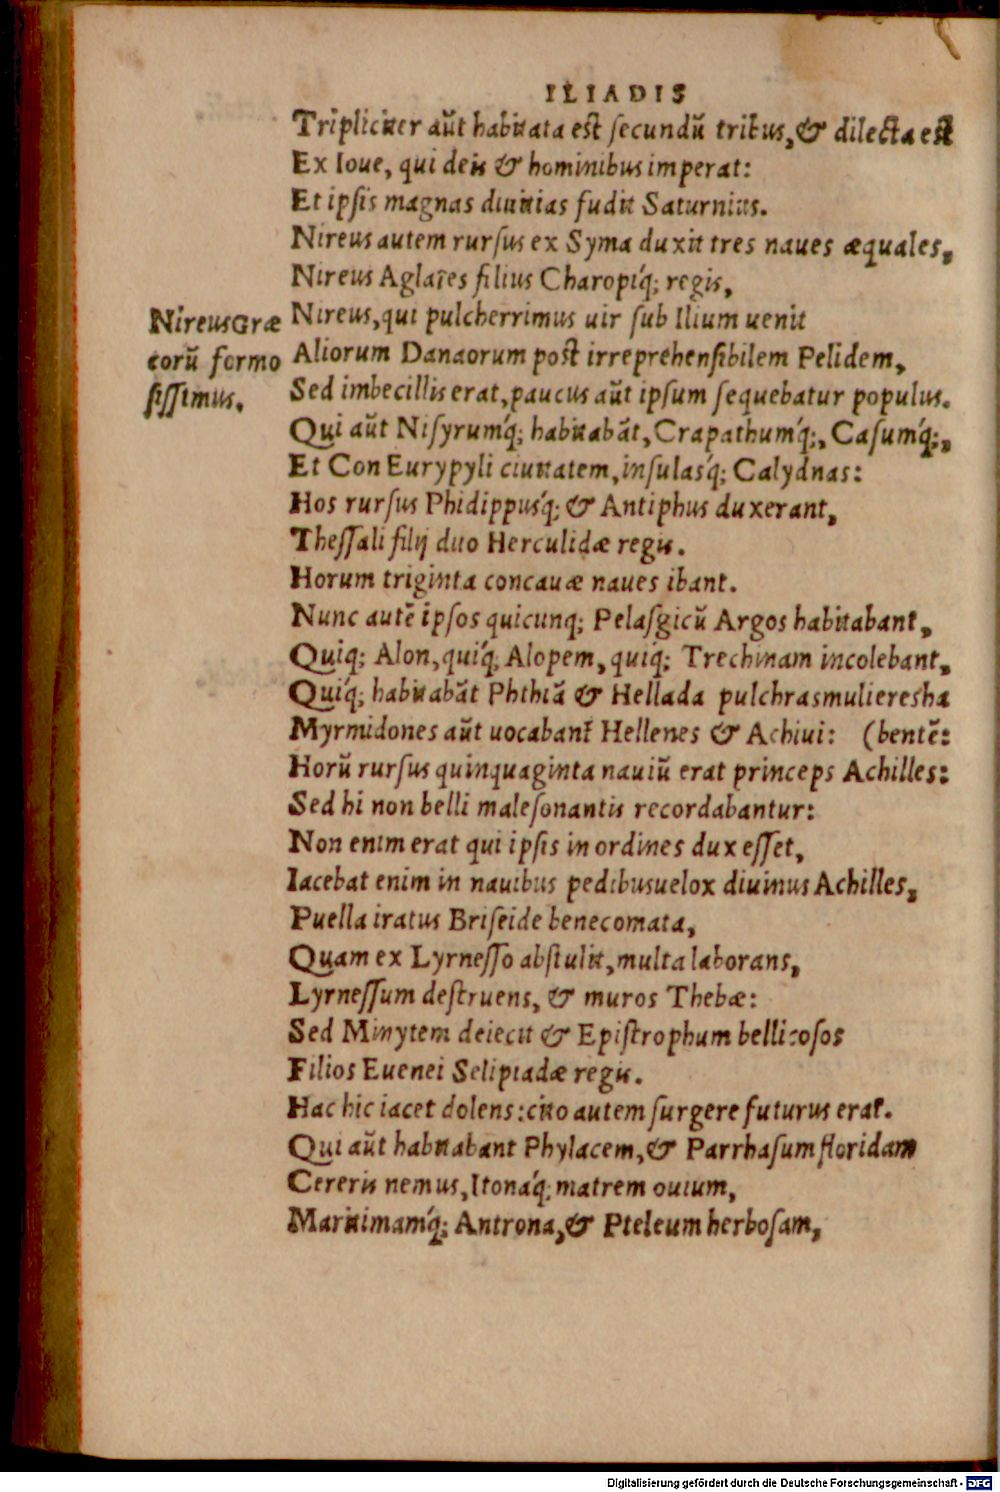 ILIADIS
Tripliciter aūt habitata est ſecundū tribus, & dilecta est
Ex Ioue, qui deis & hominibus imperat:
Et ipſis magnas diuitias fudit Saturnius.
Nireus autem rurſus ex Syma duxit tres naues æquales,
Nireus Aglaies filius Charopiq́; regis,
Nireus, qui pulcherrimus uir ſub Ilium uenit
Aliorum Danaorum post irreprehenſibilem Pelidem,
Sed imbecillis erat, paucus aūt ipſum ſequebatur populus.
Qui aūt Niſyrumq́; habitabāt, Crapathumq́;, Caſumq́;,
Et Con Eurypyli ciuitatem, inſulasq́; Calydnas:
Hos rurſus Phidippusq́; & Antiphus duxerant,
Theſſali filij duo Herculidæ regis.
Horum triginta concauæ naues ibant.
Nunc autē ipſos quicunq; Pelaſgicū Argos habitabant,
Quiq; Alon, quiq́; Alopem, quiq́; Trechinam incolebant,
Quiq́; habitabāt Phthiā & Hellada pulchrasmuliereſha
Myrmidones aūt uocabant Hellenes & Achiui: (bentē:
Horū rurſus quinquaginta nauiū erat princeps Achilles:
Sed hi non belli maleſonantis recordabantur:
Non enim erat qui ipſis in ordines dux eſſet,
Iacebat enim in nauibus pedibusuelox diuinus Achilles,
Puella iratus Briſeide benecomata,
Quam ex Lyrneſſo abstulit, multa laborans,
Lyrneſſum destruens, & muros Thebæ:
Sed Minytem deiecit & Epistrophum bellicoſos
Filios Euenei Selipiadæ regis.
Hac hic iacet dolens: cito autem ſurgere futurus erat.
Qui aūt habitabant Phylacem, & Parrhaſum floridam
Cereris nemus, Itonaq́; matrem ouium,
Maritimamq́; Antrona, & Pteleum herboſam,
Nireus Græ
corū formo
ſiſſimus.
Digitalisierung gefördert durch die Deutsche Forschungsgemeinschaft - DFG